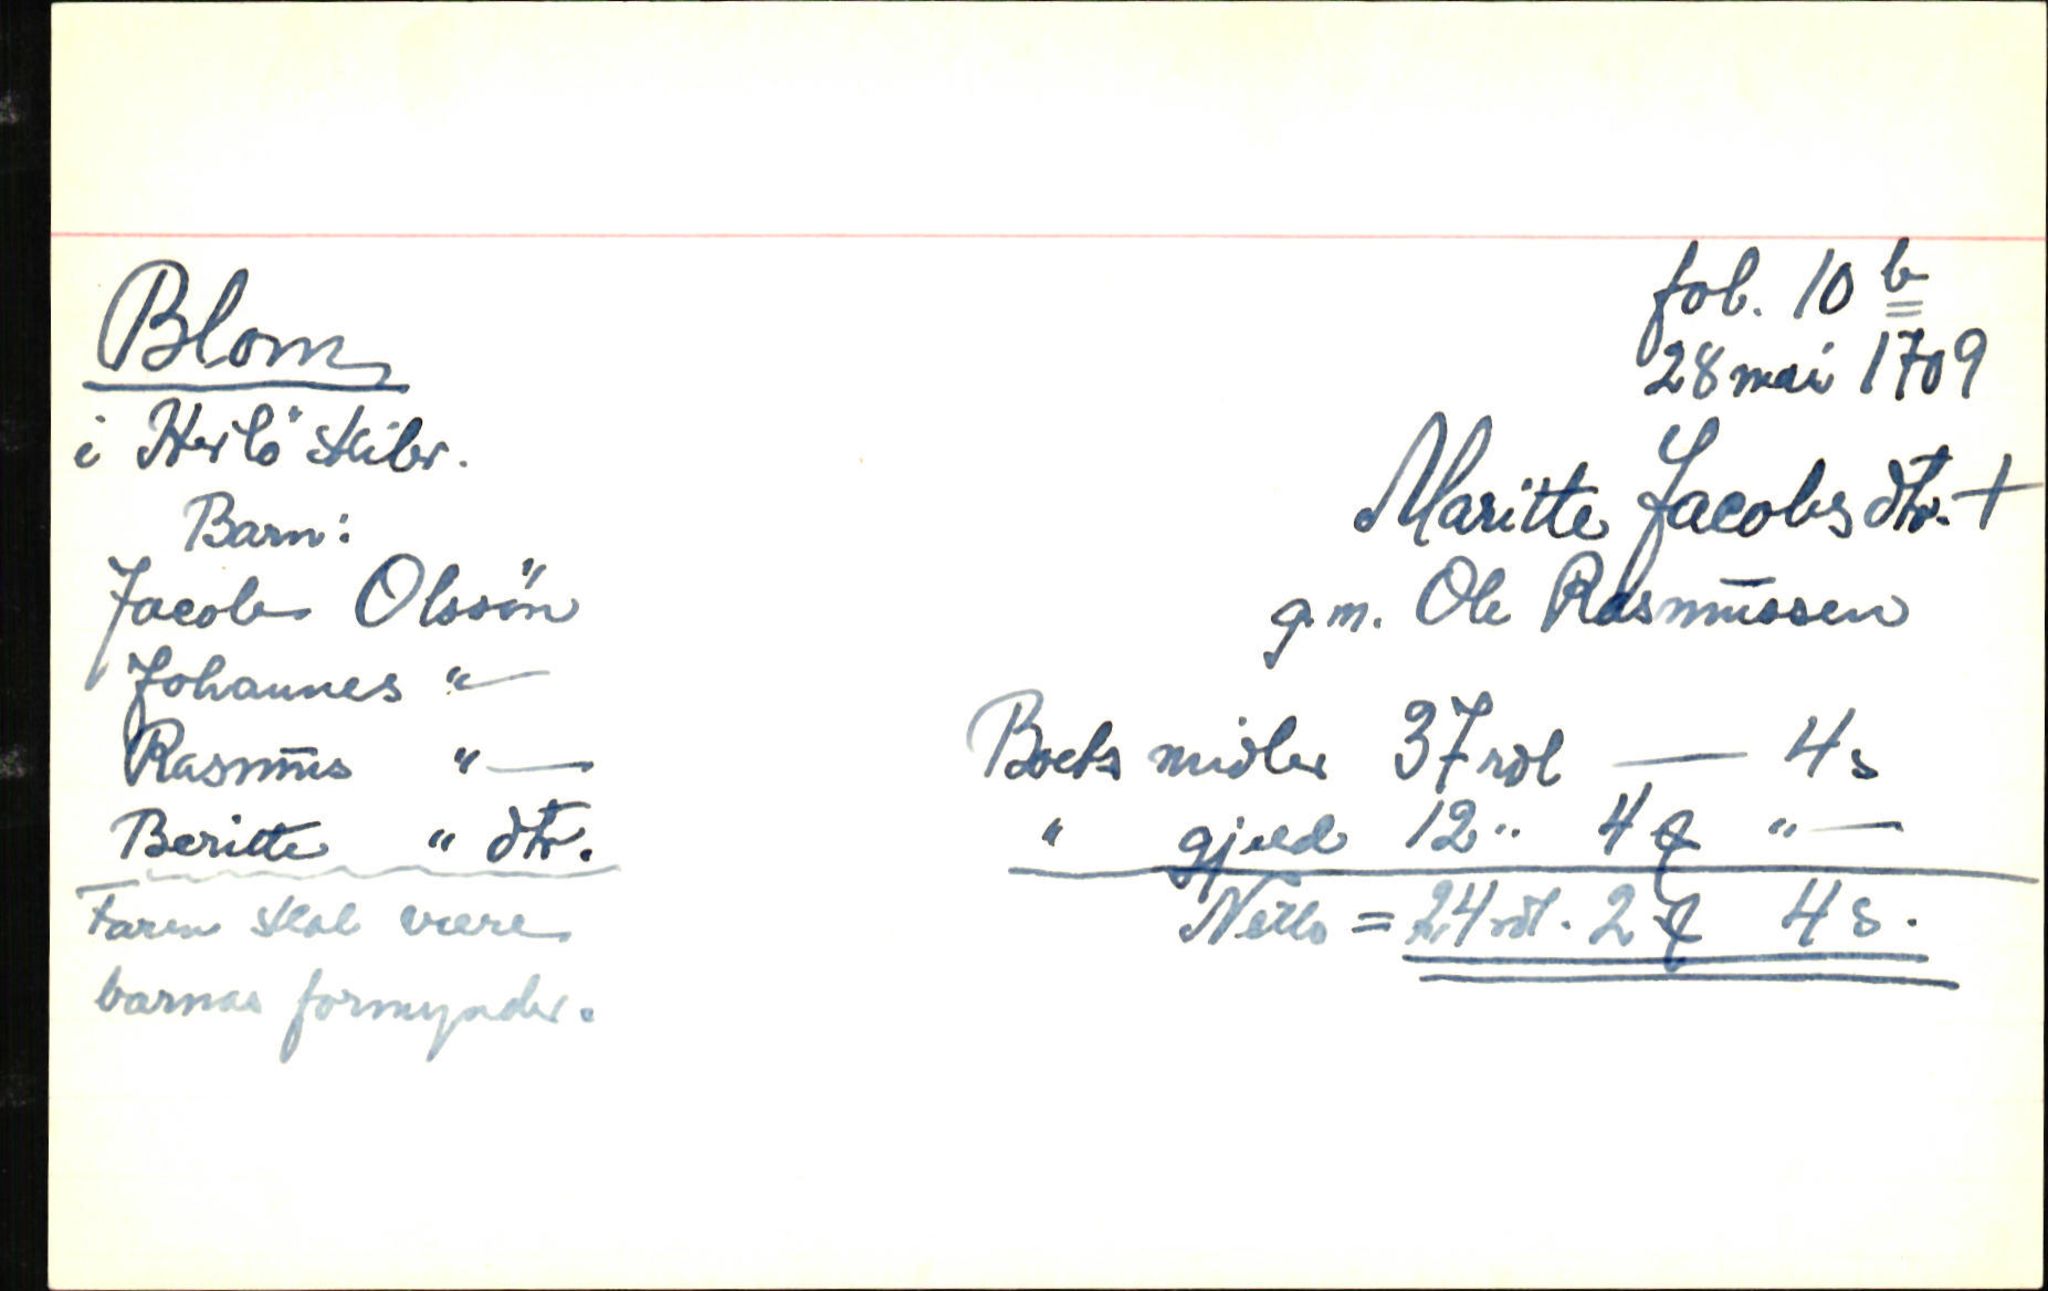 fol. 10 b
28 mai 1709
Blom
i Herlö skibr.
Maritte Jacobsdtr. +
g.m. Ole Rasmussen
Barn:
Jacob Olssön
Johannes "—
Rasmus "—
Beritte " dtr.
Faren skal være
barnas formynder.
Boets midler 37 rdl — 4 s
" gjeld 12 " 4 "—
Netto = 24 rdl. 2 4 s.